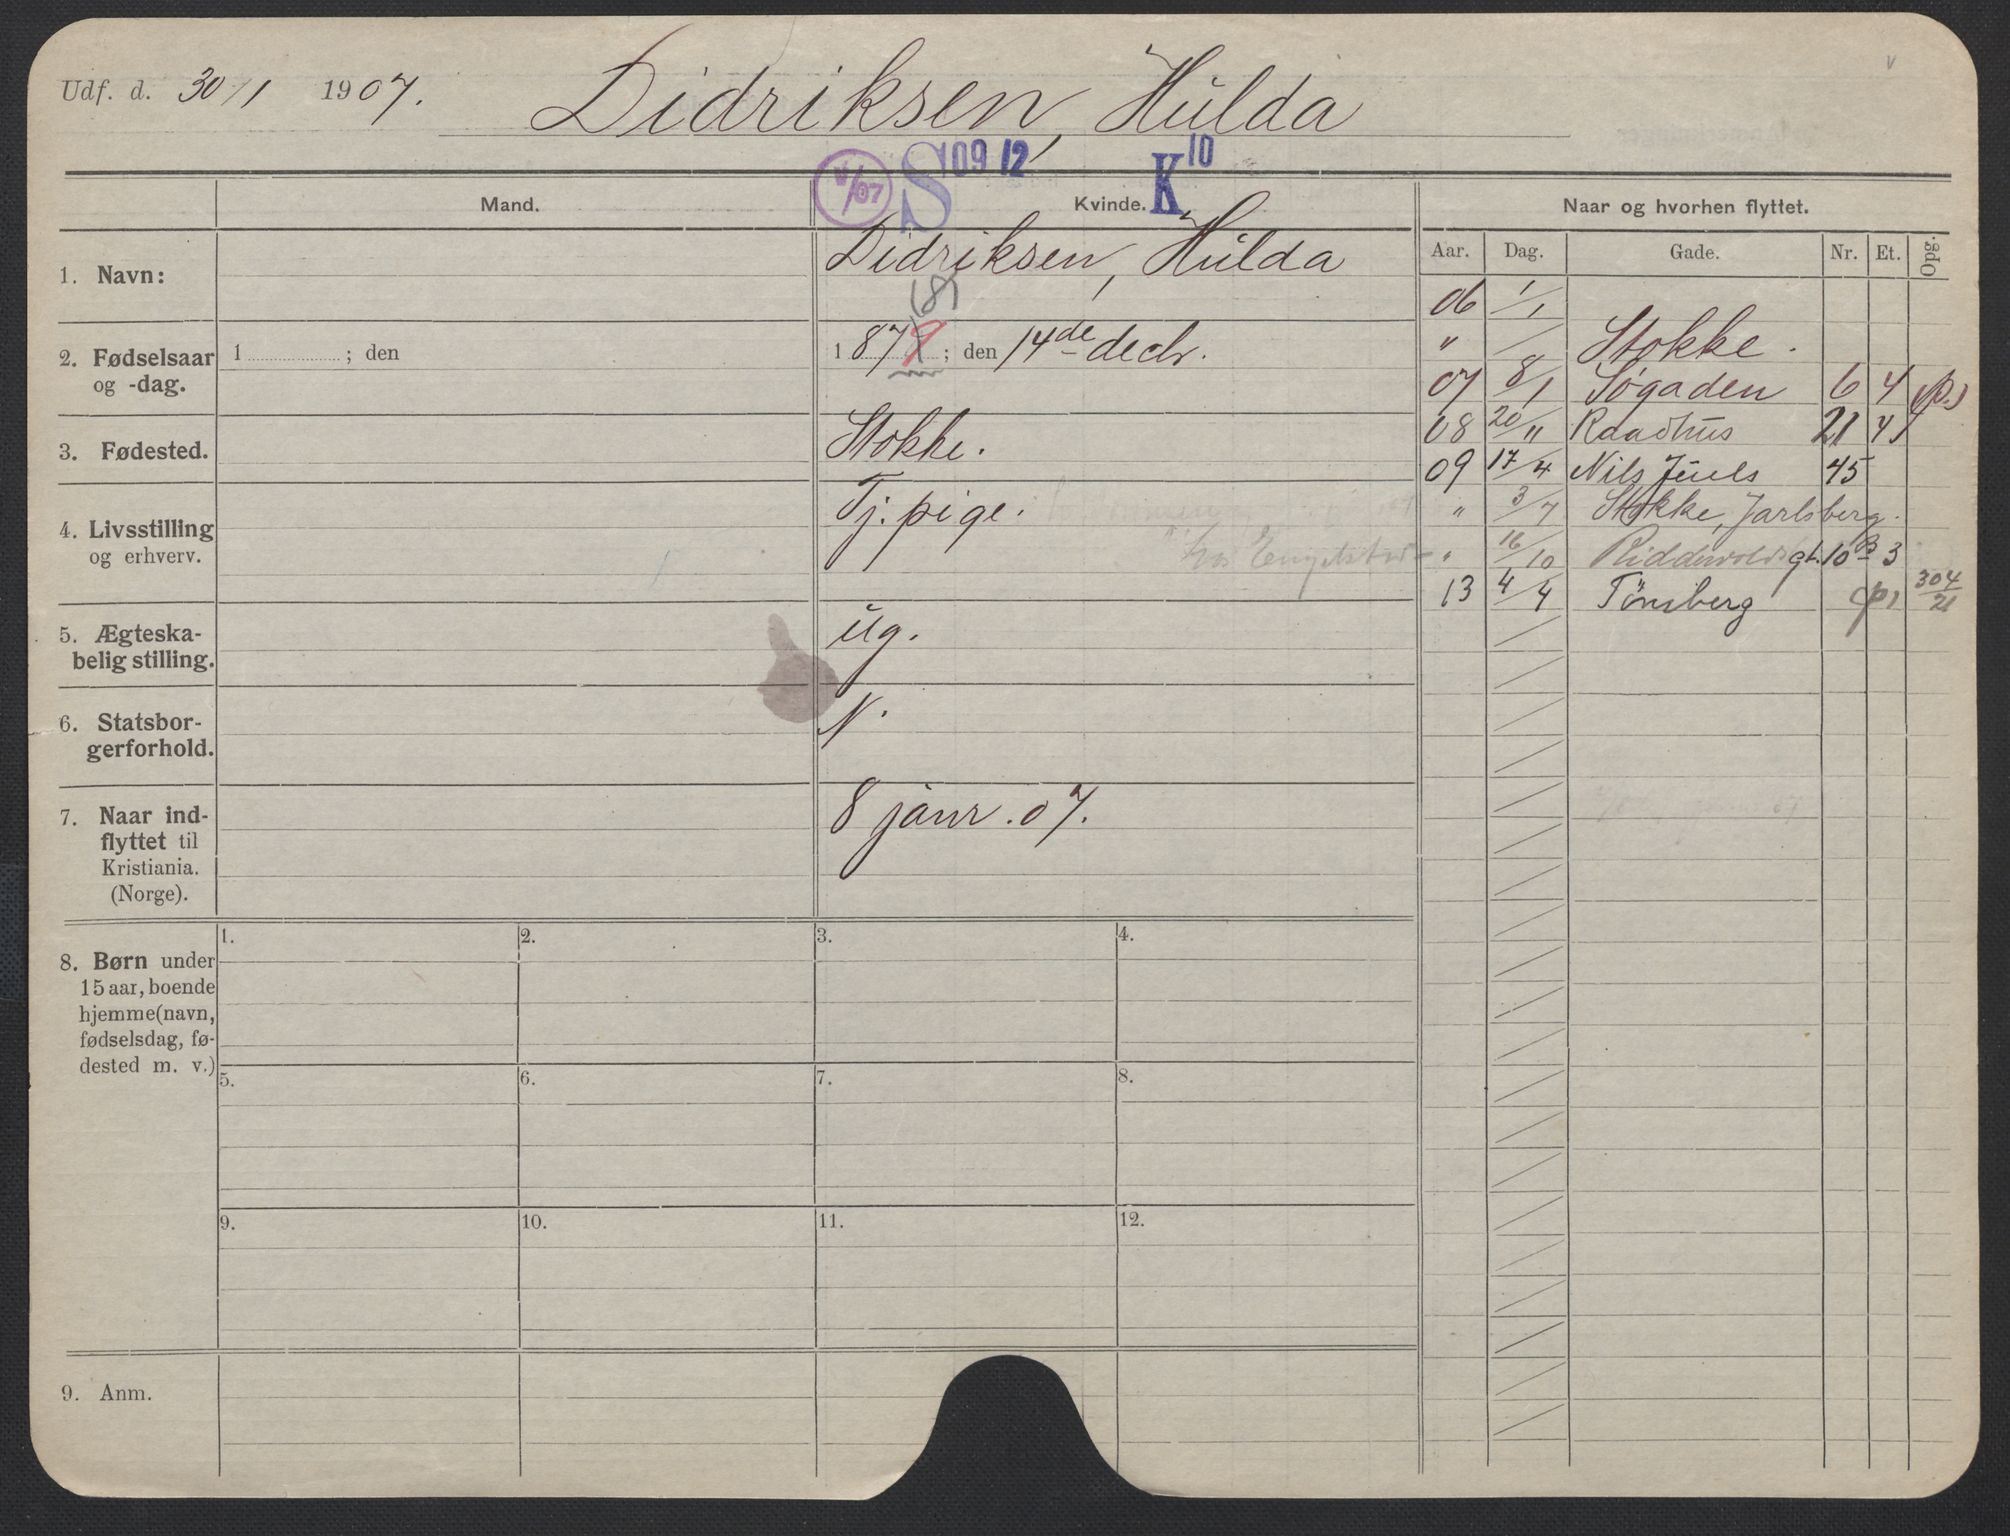 Udf. d. 30/1 1907. Didriksen, Hulda
V/07 S 09 12 K 10
Mand. Kvinde. Naar og hvorhen flyttet.
Aar. Dag. Gade. Nr. Et. Opg.
1. Navn: Didriksen, Hulda
06 1/1
(8)
2. Fødselsaar og -dag. 1 ; den
1879; den 14de decbr.
" Stokke.
07 8/1 Søgaden 6 4 (p.)
3. Fødested. Stokke.
08 20/11 Raadhus 21 4
09 17/4 Nils Juels 45
4. Livsstilling og erhverv. Tj. pige.
" 3/7 Stokke, Jarlsberg.
hos
" 16/10 Riddervoldsgt. 10 B 3
13 4/4 Tönsberg (p) 304/21
5. Ægteska-
belig stilling. ug.
6. Statsbor-
gerforhold. N.
7. Naar ind-
flyttet til
Kristiania.
(Norge). 8 janr. 07.
8. Børn under
15 aar, boende
hjemme (navn,
fødselsdag, fø-
dested m. v.)
1. 2. 3. 4.
5. 6. 7. 8.
9. 10. 11. 12.
9. Anm.